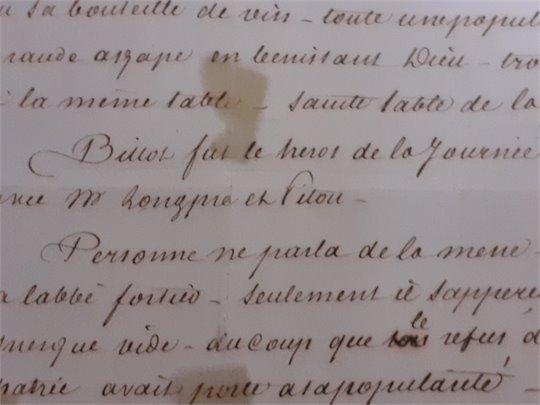 sa bouteille de vin - toute une popul
rande agape en benissant Dieu - tro
à la même table - sainte table de la
Billot fut le heros de la Journée
Mr Longpré et Pitou -
Personne ne parla de la messe -
labbé fortier - seulement il sapperç
presque vide - du coup que le refus d
patrie avait porté a sa popularité -